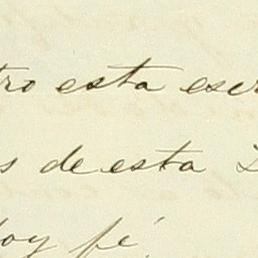 tro esta escr
s de esta
doy fé